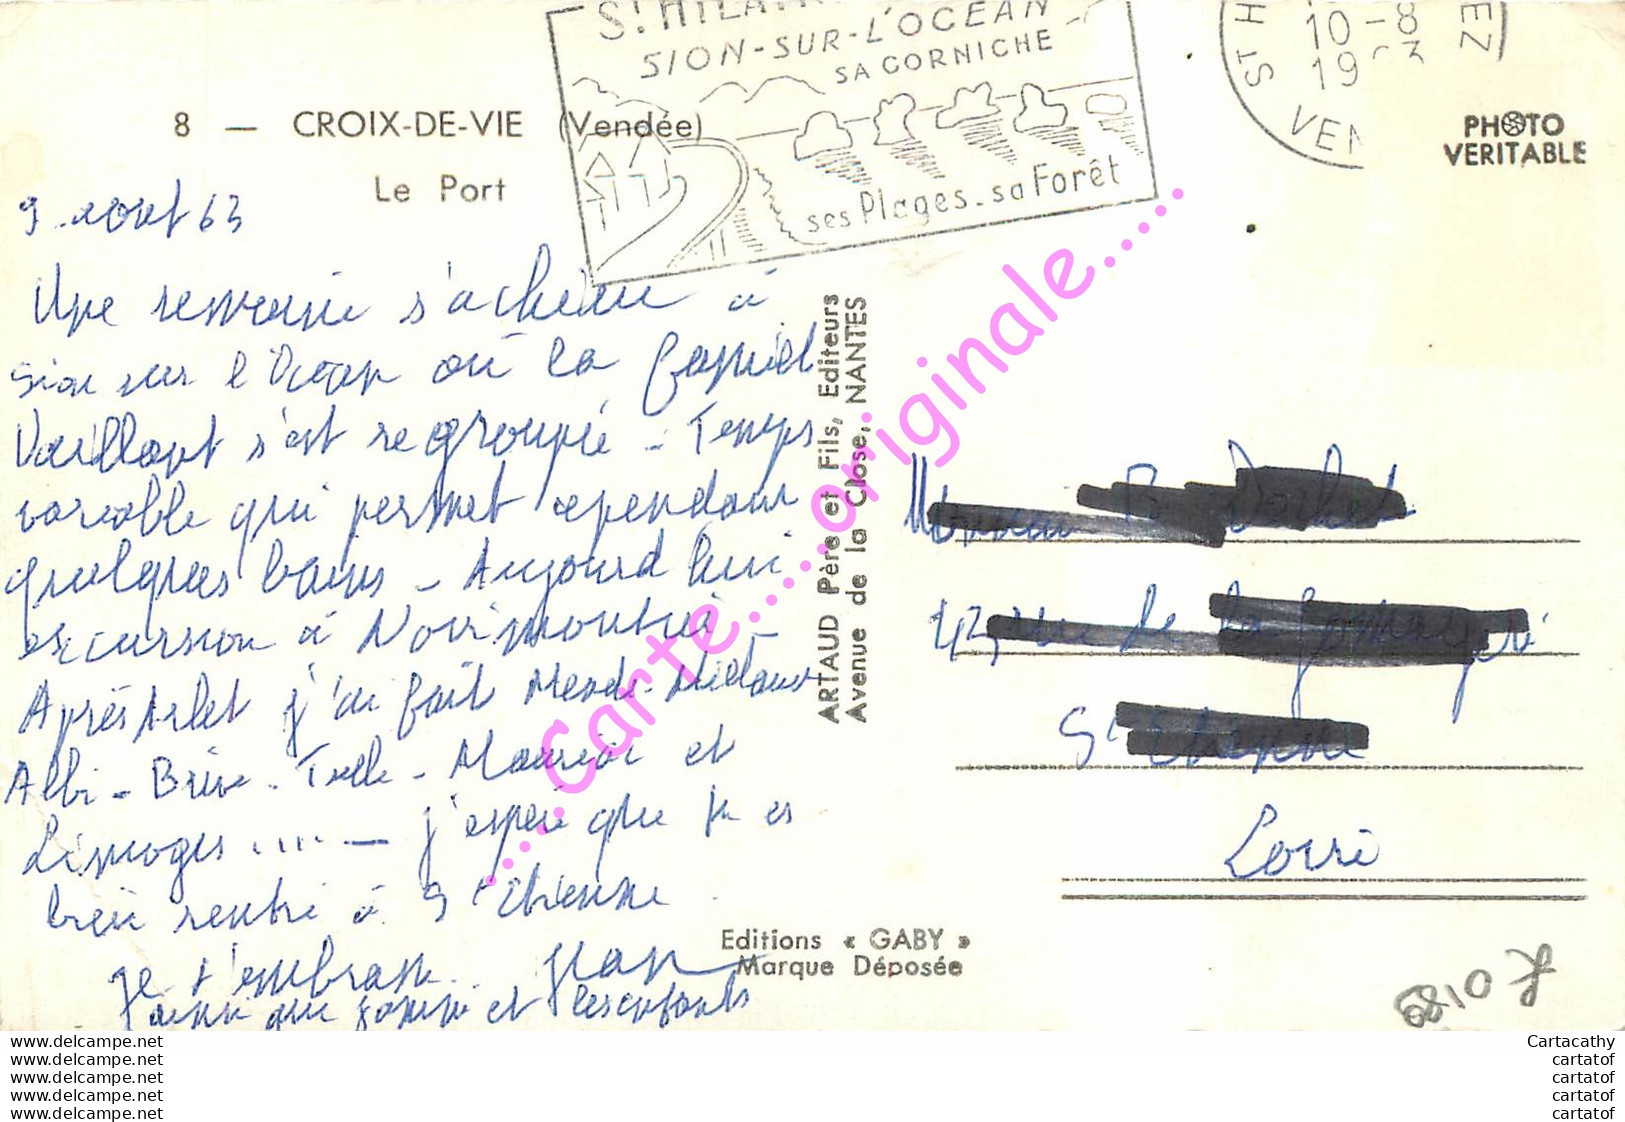 St HILAI
SION-SUR-L'OCEAN
SA CORNICHE
ses Plages - sa Forêt
10-8
19 3
ST H
VEN
EZ
8 — CROIX-DE-VIE (Vendée)
Le Port
PHOTO
VERITABLE
9 aout 63
Une semaine s'achève à
Sion sur l'Ocean où la famille
Vaillant s'est regroupée - Temps
variable qui permet cependant
quelques bains - Aujourd'hui
excursion à Noirmoutier
Après Arlet j'ai fait Mende-Millau
Albi - Brive - Tulle - Mauriac et
Limoges .... — j'espère que tu es
bien rentré à St Etienne.
Je t'embrasse Jean
ainsi que et les enfants
ARTAUD Père et Fils, Editeurs
Avenue de la Close, NANTES
Monsieur
rue de la
St Etienne
Loire
Editions « GABY »
Marque Déposée
...Carte......originale......
www.delcampe.net
www.delcampe.net
www.delcampe.net
www.delcampe.net
www.delcampe.net
Cartacathy
cartatof
cartatof
cartatof
cartatof